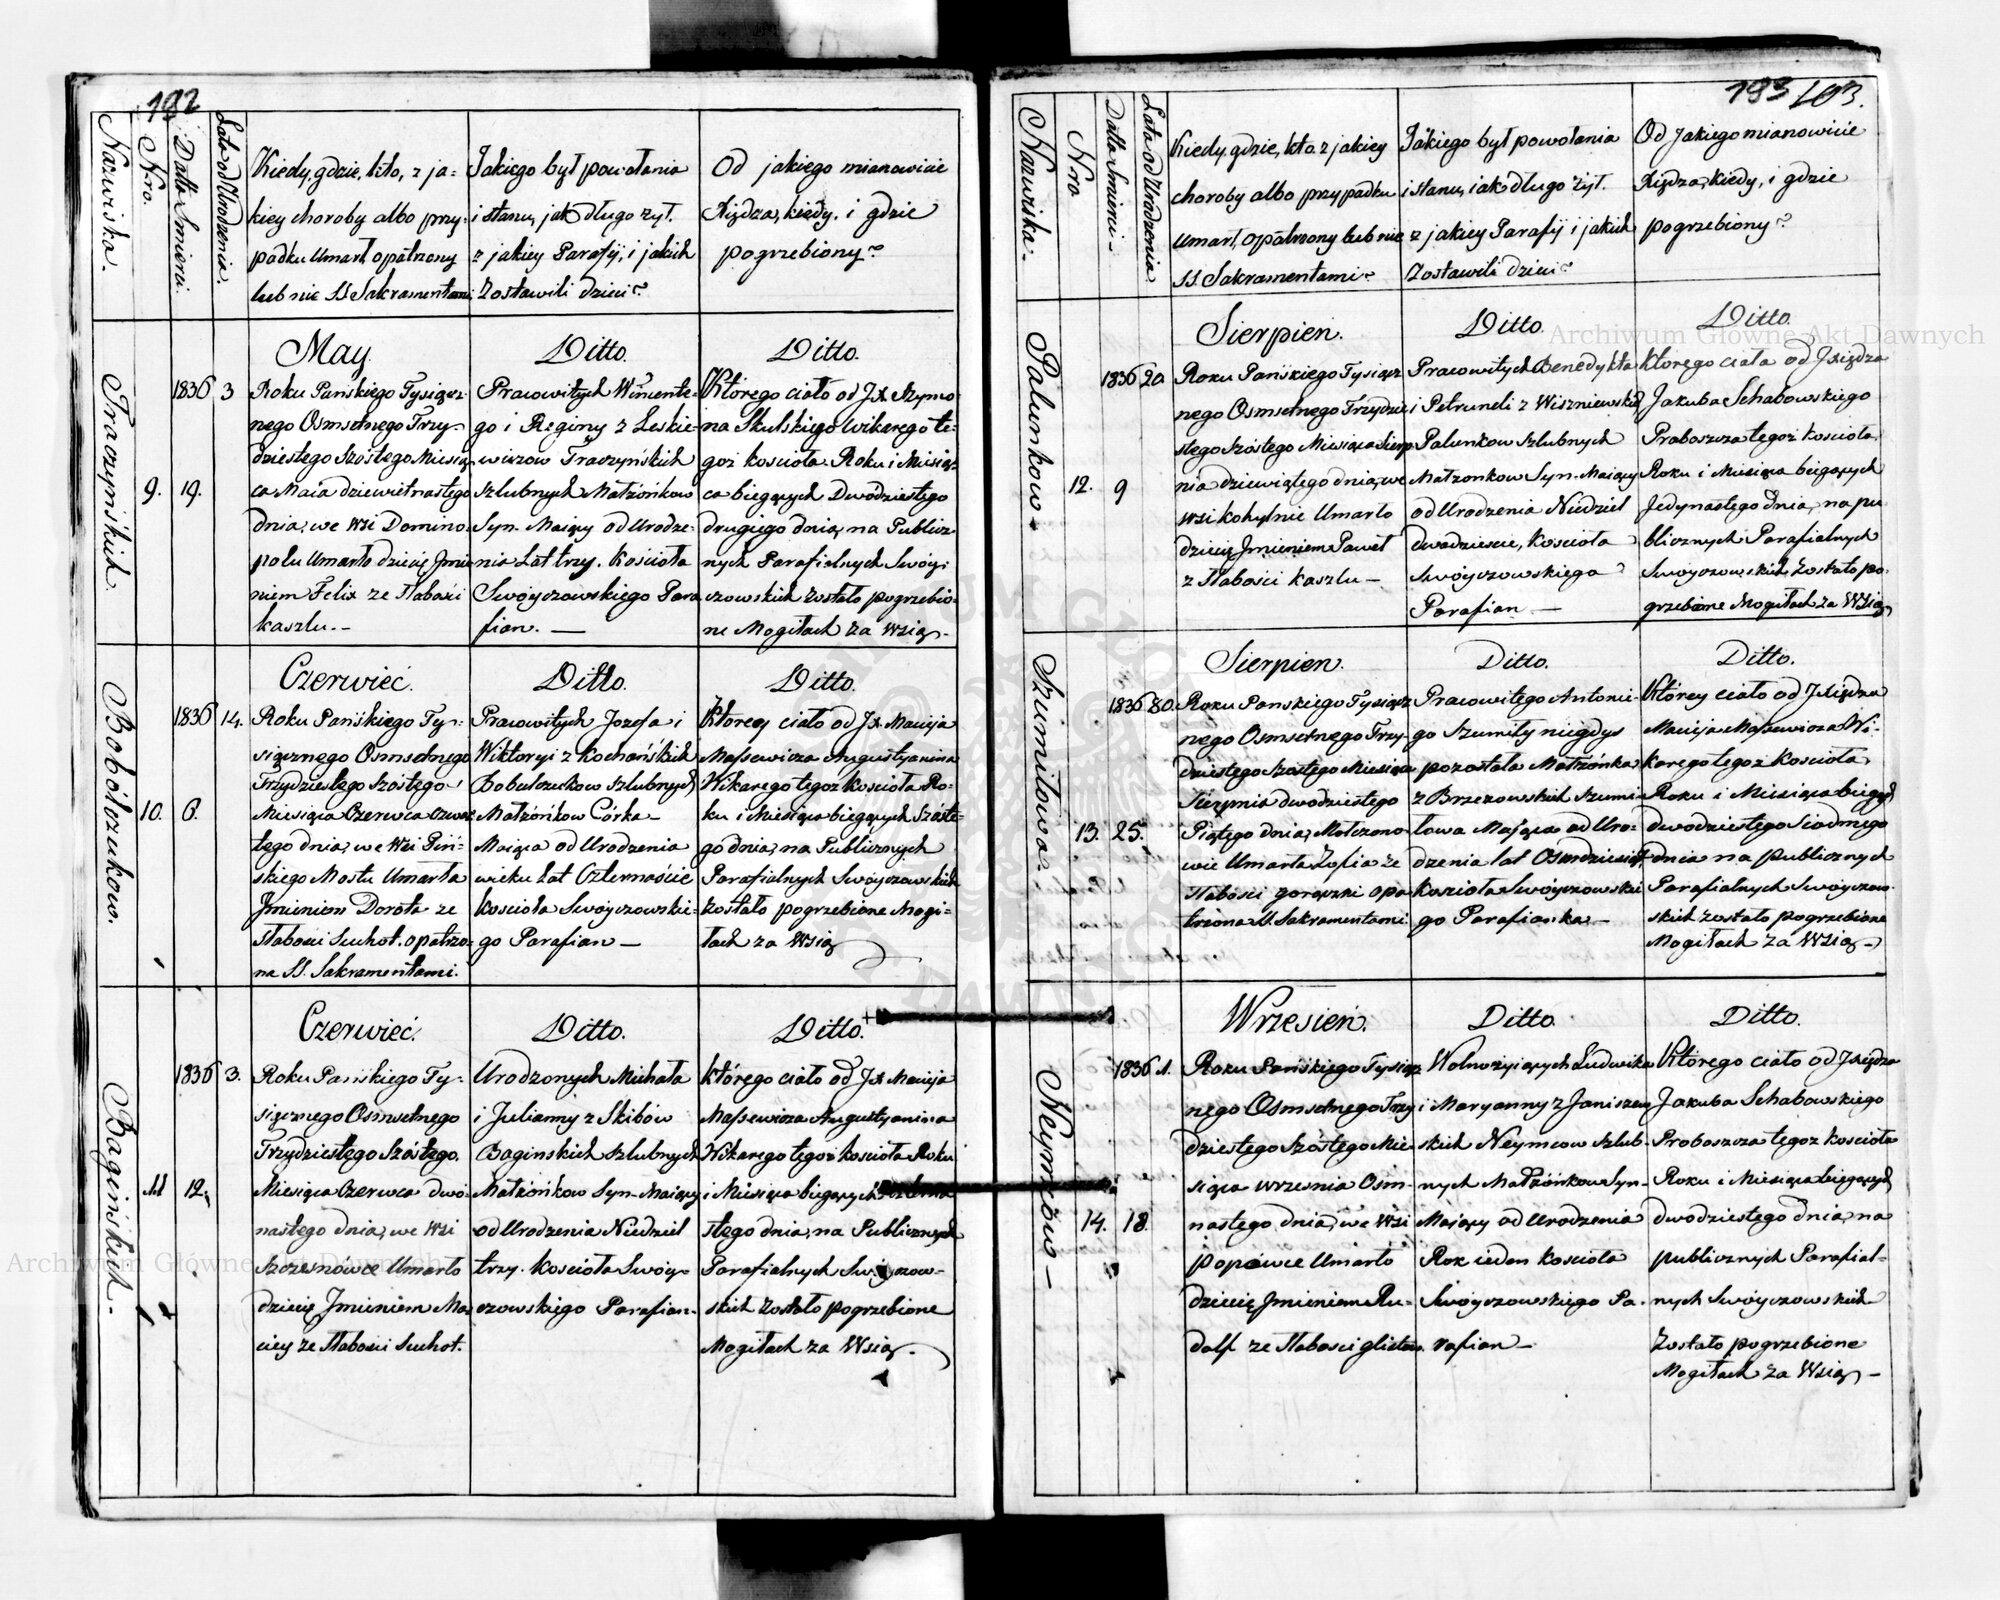 182
Nazwiska.
Nro.
Datta Smierci.
Lata od Urodzenia.
Kiedy, gdzie, kto, z ja-
kiey choroby albo przy-
padku Umarł opatrzony
lub nie SS Sakramentami
Jakiego był powołania
i stanu, jak długo żył.
z jakiey Parafii, i jakich
Zostawili dzieci?
Od jakiego mianowicie
Xiędza, kiedy, i gdzie
pogrzebiony?
Traczyńskich.
9.
1836
19.
3
May.
Roku Pańskiego Tysiącz
nego Osmsetnego Trzy-
dziestego Szóstego Miesią
ca Maia dziewietnastego
dnia, we Wsi Domino
polu Umarło dziecię Jmie
niem Felix ze Słabości
kaszlu.--
Ditto.
Pracowitych Wincente-
go i Reginy z Leskie-
wiczow Traczynskich
szlubnych Matżónkow
Syn. Maiący od Urodze-
nia Lat trzy. Kościoła
Swóyczowskiego Para
fian. —
Ditto.
Którego ciało od JX Szymo
na Skulskiego Wikarego te-
goż kościoła Roku i Miesią-
ca bieżących Dwódziestego
drugiego dnia, na Publicz
nych Parafialnych Swóy-
czowskich zostało pogrzebio-
ne Mogiłach za Wsią-
Bobólczukow.
10.
1836
6.
14.
Czerwieć.
Roku Pańskiego Ty-
siącznego Osmsetnego
Trzydziestego Szóstego
Miesiąca Czerwca
tego dnia, we Wsi Piń-
skiego Mostu Umarła
Jmieniem Dorota ze
Słabości Suchot. opatrzo-
na SS. Sakramentami.
Ditto.
Pracowitych Jozefa i
Wiktoryi z Kochańskich
Bobulczukow szlubnych
Matżónkow Córka—
Maiąca od Urodzenia
wieku Lat Czternaście
kościoła Swoyczowskie-
go Parafian—
Ditto.
Ktorey ciało od JX. Macieja
Massewicza Augustyanina
Wikarego tegoż kościoła Ro-
ku i Miesiąca bieżących Szóste-
go dnia, na Publicznych
Parafialnych Swóyczowskich
zostało pogrzebione Mogi-
łach za Wsią
Bagińskich.
11
1836
12.
3.
Czerwieć.
Roku Pańskiego Ty-
siącznego Osmsetnego
Trzydziestego Szóstego.
Miesiąca Czerwca dwó
nastego dnia, we Wsi
Szczesnówce Umarło
dziecię Jmieniem Ma
ciey ze Słabości Suchot.
Ditto.
Urodzonych Michała
i Julianny z Skibów
Baginskich szlubnych
Matżónkow Syn- Maiący
od Urodzenia Niedziel
trzy. kościoła Swóy-
czowskiego Parafian-
Ditto.
którego ciało od JX Macieja
Massewicza Augustyanina
Wikarego tegoż kościoła Roku
i Miesiąca bieżących
stego dnia, na Publicznych
Parafialnych Swóyczow-
skich zostało pogrzebione
Mogiłach za Wsią-
183
103.
Nazwiska.
Nro
Datta Smierci-
Lata od Urodzenia
Kiedy, gdzie, kto, z jakiey
choroby albo przypadku
Umarł, opatrzony lub nie
SS. Sakramentami?
Jakiego był powołania
i stanu, iak długo żył.
z jakiey Parafij i jakich
Zostawili dzieci?
Od Jakiego mianowicie
Xiędza, kiedy, i gdzie
pogrzebiony?
Palunkow-
12.
1836
9
20
Sierpień.
Roku Pańskiego Tysiącz
nego Osmsetnego Trzydzie
stego Szóstego Miesiąca Sierp
nia dziewiątego dnia, we
wsi kohylnie Umarło
dziecię Jmieniem Paweł
z Słabości kaszlu—
Ditto.
Pracowitych Benedykta
i Petruneli z Wiszniewskich
Palunkow szlubnych
Matzonkow Syn. Maiący
od Urodzenia Niedziel
dwadziescie, kościoła
Swóyczowskiego
Parafian —
Ditto.
ktorego ciało od JXiędza
Jakuba Schabowskiego
Proboszcza tegoż kościoła
Roku i Miesiąca bieżących
Jedynastego dnia, na pu
blicznych Parafialnych
Swoyczowskich zostało po-
grzebione Mogiłach za Wsią
Szumiłowa-
13.
1836
25.
80.
Sierpien.
Roku Panskiego Tysiącz
nego Osmsetnego Trzy-
dziestego Szóstego Miesiąca
Sierpnia dwodziestego
Piątego dnia,
wie Umarła Zofia ze
Słabości gorączki opa
trzona SS. Sakramentami
Ditto.
Pracowitego Antonie-
go Szumiły niegdys
pozostała Matżónka
z Brzezowskich Szumi-
łowa Mająca od Uro-
dzenia lat Osmdziesiąt
kościoła Swóyczowskie
go Parafianka—
Ditto.
Którey ciało od JXiędza
Macieja Massewicza Wi-
karego tegoż Kościoła
Roku i Miesiąca bieżących
dwodziestego Siodmego
dnia na publicznych
Parafialnych Swóyczow
skich zostało pogrzebione
Mogiłach za Wsią-
Neymców-
14.
1836
18
1.
Wrzesień.
Roku Pańskiego Tysiącz
nego Osmsetnego Trzy
dziestego Szóstego Mie-
siąca września Osm-
nastego dnia, we Wsi
Popówce Umarło
dziecię Jmieniem Ru-
dolf ze Słabości glistow.
Ditto.
Wolnożyiących Ludwika
i Maryanny z Janiszew
skich Neymcow szlub-
nych Matżónkow Syn-
Mający od Urodzenia
Rok ieden kościoła
Swóyczowskiego Pa-
rafian—
Ditto.
Którego ciało od JXiędza
Jakuba Schabowskiego
Proboszcza tegoż kościoła
Roku i Miesiąca bieżących
dwodziestego dnia, na
publicznych Parafial-
nych Swóyczowskich
zostało pogrzebione
Mogiłach za Wsią-
Archiwum Główne Akt Dawnych
Archiwum Główne Akt Dawnych